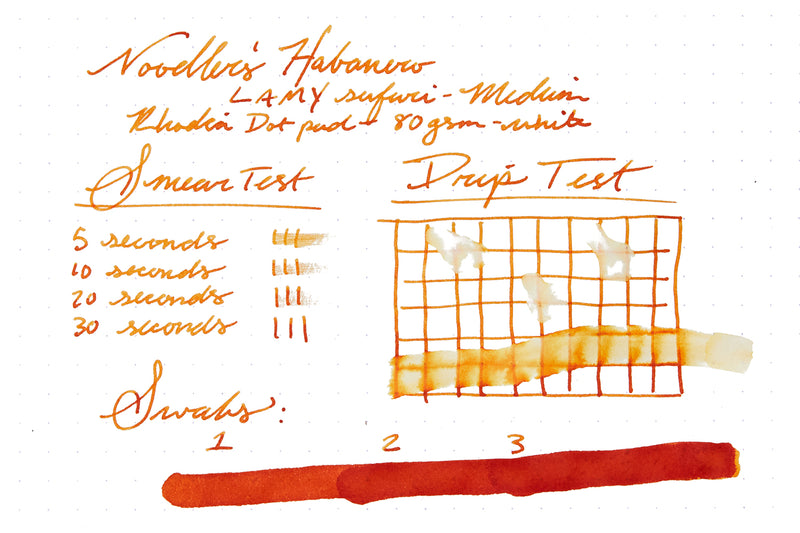 Noodler's Habanero
LAMY safari - Medium
Rhodia Dot pad - 80gsm - white
Smear Test
5 seconds
10 seconds
20 seconds
30 seconds
Drip Test
Swabs:
1 2 3